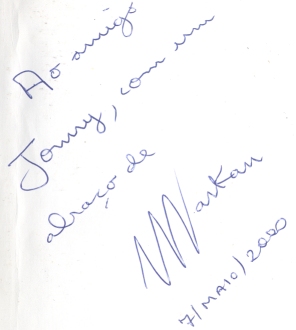 Ao amigo
Jonny, com um
abraço de
Wartan
7/MAIO/2000